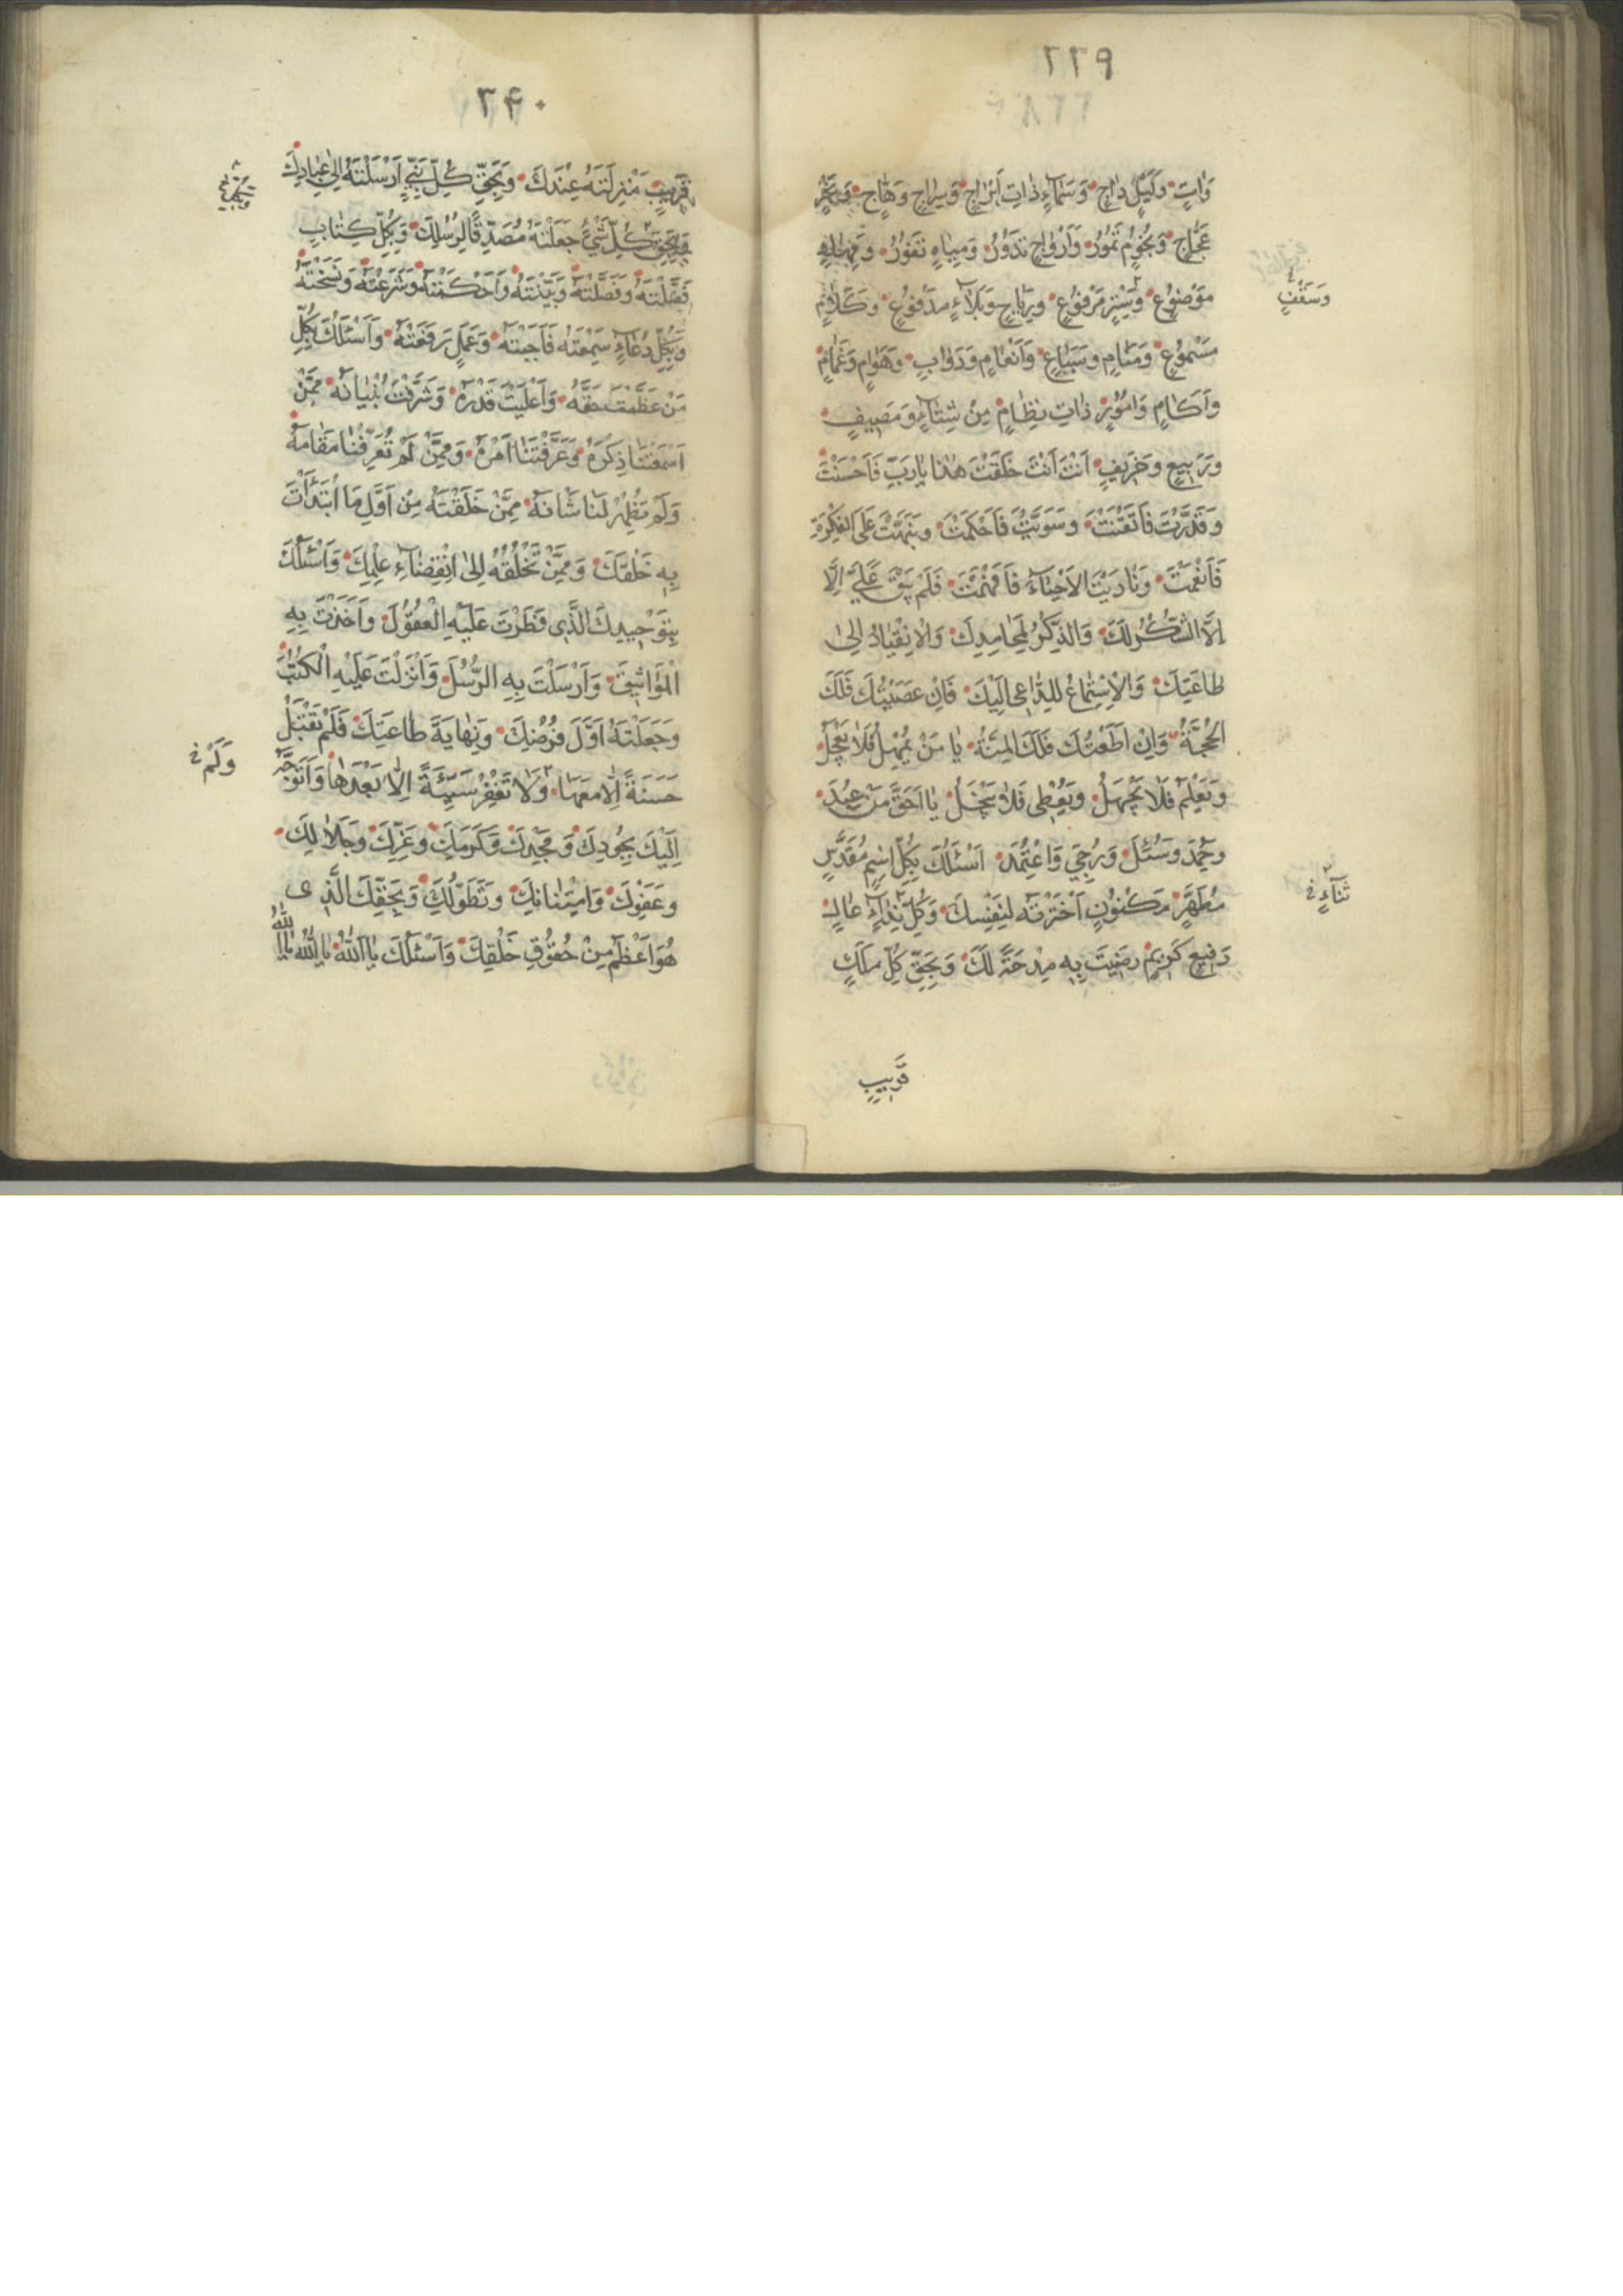 ٢٣٩
وَاتٍ وَلَيْلٍ دٰاجٍ وَسَمٰآءٍ ذٰاتِ اَبْرٰاجٍ وَسِرٰاجٍ وَهّٰاجٍ وَبَحْرٍ
عَجّٰاجٍ وَنُجُوٍم تَمُورُ وَاَرْوٰاحٍ تَدُورُ وَمِيٰاهٍ تَفُورُ وَمِهٰادٍ
مَوْضُوعٍ وَسِتْرٍ مَرْفُوعٍ وَرِيٰاحٍ وَبَلٰآءٍ مَدْفُوعٍ وَكَلٰامٍ
وَسَقْفٍ
مَسْمُوعٍ وَمَنٰامٍ وَسِبٰاعٍ وَاَنْعٰامٍ وَدَوٰابٍ وَهَوٰامٍ وَغَمٰامٍ
وَاٰكٰامٍ وَاُمُورٍ ذٰاتِ نِظٰامٍ مِنْ شِتٰآءٍ وَمَصِيفٍ
وَرَبِيعٍ وَخَرِيفٍ اَنْتَ اَنْتَ خَلَقْتَ هٰذٰا يٰا رَبِّ فَاَحْسَنْتَ
وَقَدَّرْتَ فَاَتْقَنْتَ وَسَوَّيْتَ فَاَحْكَمْتَ وَنَبَّهْتَ عَلَى الْفِكْرَةِ
فَاَنْعَمْتَ وَنٰادَيْتَ الْاَحْيٰآءَ فَاَفْهَمْتَ فَلَمْ يَبْقَ عَلَيَّ اِلَّا
اِلَّا الشُّكْرُ لَكَ وَالذِّكْرُ لِمَحٰامِدِكَ وَالْاِنْقِيٰادُ اِلىٰ
طٰاعَتِكَ وَالْاِسْتِمٰاعُ لِلدّٰاعى اِلَيْكَ فَاِنْ عَصَيْتُكَ فَلَكَ
الْحُجَّةُ وَاِنْ اَطَعْتُكَ فَلَكَ الْمِنَّةُ يٰا مَنْ يُمْهِلُ فَلٰا يَعْجَلُ
وَيَعْلَمُ فَلٰا يَجْهَلُ وَيُعْطِى فَلٰا يَبْخَلُ يٰا اَحَقَّ مَنْ عُبِدَ
وَحُمِدَ وَسُئِلَ وَرُجِيَ وَاعْتُمِدَ اَسْئَلُكَ بِكُلِّ اسْمٍ مُقَدَّسٍ
مُطَهَّرٍ مَكْنُونٍ اخْتَرْتَهُ لِنَفْسِكَ وَكُلِّ نِدٰآءٍ عٰالٍ
ثَنٰآءٍ
رَفِيعٍ كَرِيمٍ رَضِيتَ بِهِ مِدْحَةً لَكَ وَبِحَقِّ كُلِّ مَلَكٍ
قَرِيبٍ
٢۴٠
قَرِيبٍ مَنْزِلَتُهُ عِنْدَكَ وَبِحَقِّ كُلِّ نَبِيٍّ اَرْسَلْتَهُ اِلىٰ عِبٰادِكَ
وَبِحَقِّ كُلِّ شَيْءٍ جَعَلْتَهُ مُصَدِّقًا لِرُسُلِكَ وَبِكُلِّ كِتٰابٍ
فَضَّلْتَهُ وَفَصَّلْتَهُ وَبَيَّنْتَهُ وَاَحْكَمْتَهُ وَشَرَعْتَهُ وَنَسَخْتَهُ
وَبِكُلِّ دُعٰآءٍ سَمِعْتَهُ فَاَجَبْتَهُ وَعَمَلٍ رَفَعْتَهُ وَاَسْئَلُكَ بِكُلِّ
مَنْ عَظَّمْتَ حَقَّهُ وَاَعْلَيْتَ قَدْرَهُ وَشَرَّفْتَ بُنْيٰانَهُ مِمَّنْ
اَسْمَعْتَنٰا ذِكْرَهُ وَعَرَّفْتَنٰا اَمْرَهُ وَمِمَّنْ لَمْ تُعَرِّفْنٰا مَقٰامَهُ
وَلَمْ تُظْهِرْ لَنٰا شَانَهُ مِمَّنْ خَلَقْتَهُ مِنْ اَوَّلِ مَا ابْتَدَأْتَ
بِهِ خَلْقَكَ وَمِمَّنْ تَخْلُقُهُ اِلىٰ انْقِضٰآءِ عِلْمِكَ وَاَسْئَلُكَ
بِتَوْحِيدِكَ الَّذِى فَطَرْتَ عَلَيْهِ الْعُقُولَ وَاَخَذْتَ بِهِ
الْمَوٰاثِيقَ وَاَرْسَلْتَ بِهِ الرُّسُلَ وَاَنْزَلْتَ عَلَيْهِ الْكُتُبَ
وَجَعَلْتَهُ اَوَّلَ فُرُوضِكَ وَنِهٰايَةَ طٰاعَتِكَ فَلَمْ تَقْبَلْ
حَسَنَةً اِلّٰا مَعَهٰا وَلٰا تَغْفِرْ سَيِّئَةً اِلّٰا بَعْدَهٰا وَاَتَوَجَّهُ
وَلَمْ
اِلَيْكَ بِجُودِكَ وَمَجْدِكَ وَكَرَمِكَ وَعِزِّكَ وَجَلٰالِكَ
وَعَفْوِكَ وَامْتِنٰانِكَ وَتَطَوُّلِكَ وَبِحَقِّكَ الَّذِى
هُوَ اَعْظَمُ مِنْ حُقُوقِ خَلْقِكَ وَاَسْئَلُكَ يٰا اَللهُ يٰا اَللهُ يٰا اَللهُ